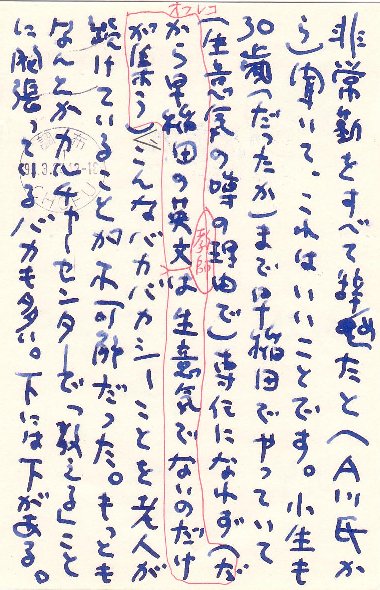 オフレコ
非常勤をすべて辞めたと(A川氏か
ら)聞いて、これはいいことです。小生も
30歳(だったか)まで早稲田でやっていて
(生意気の噂の理由で)専任になれず(だ
から早稲田の英文は生意気でないのだけ
教師
が集う)こんなバカバカシーことを老人が
続けていることが不可解だった。もっとも
なんとかカルチャーセンターで「教える」こと
に頑張ってるバカも多い。下には下がある。